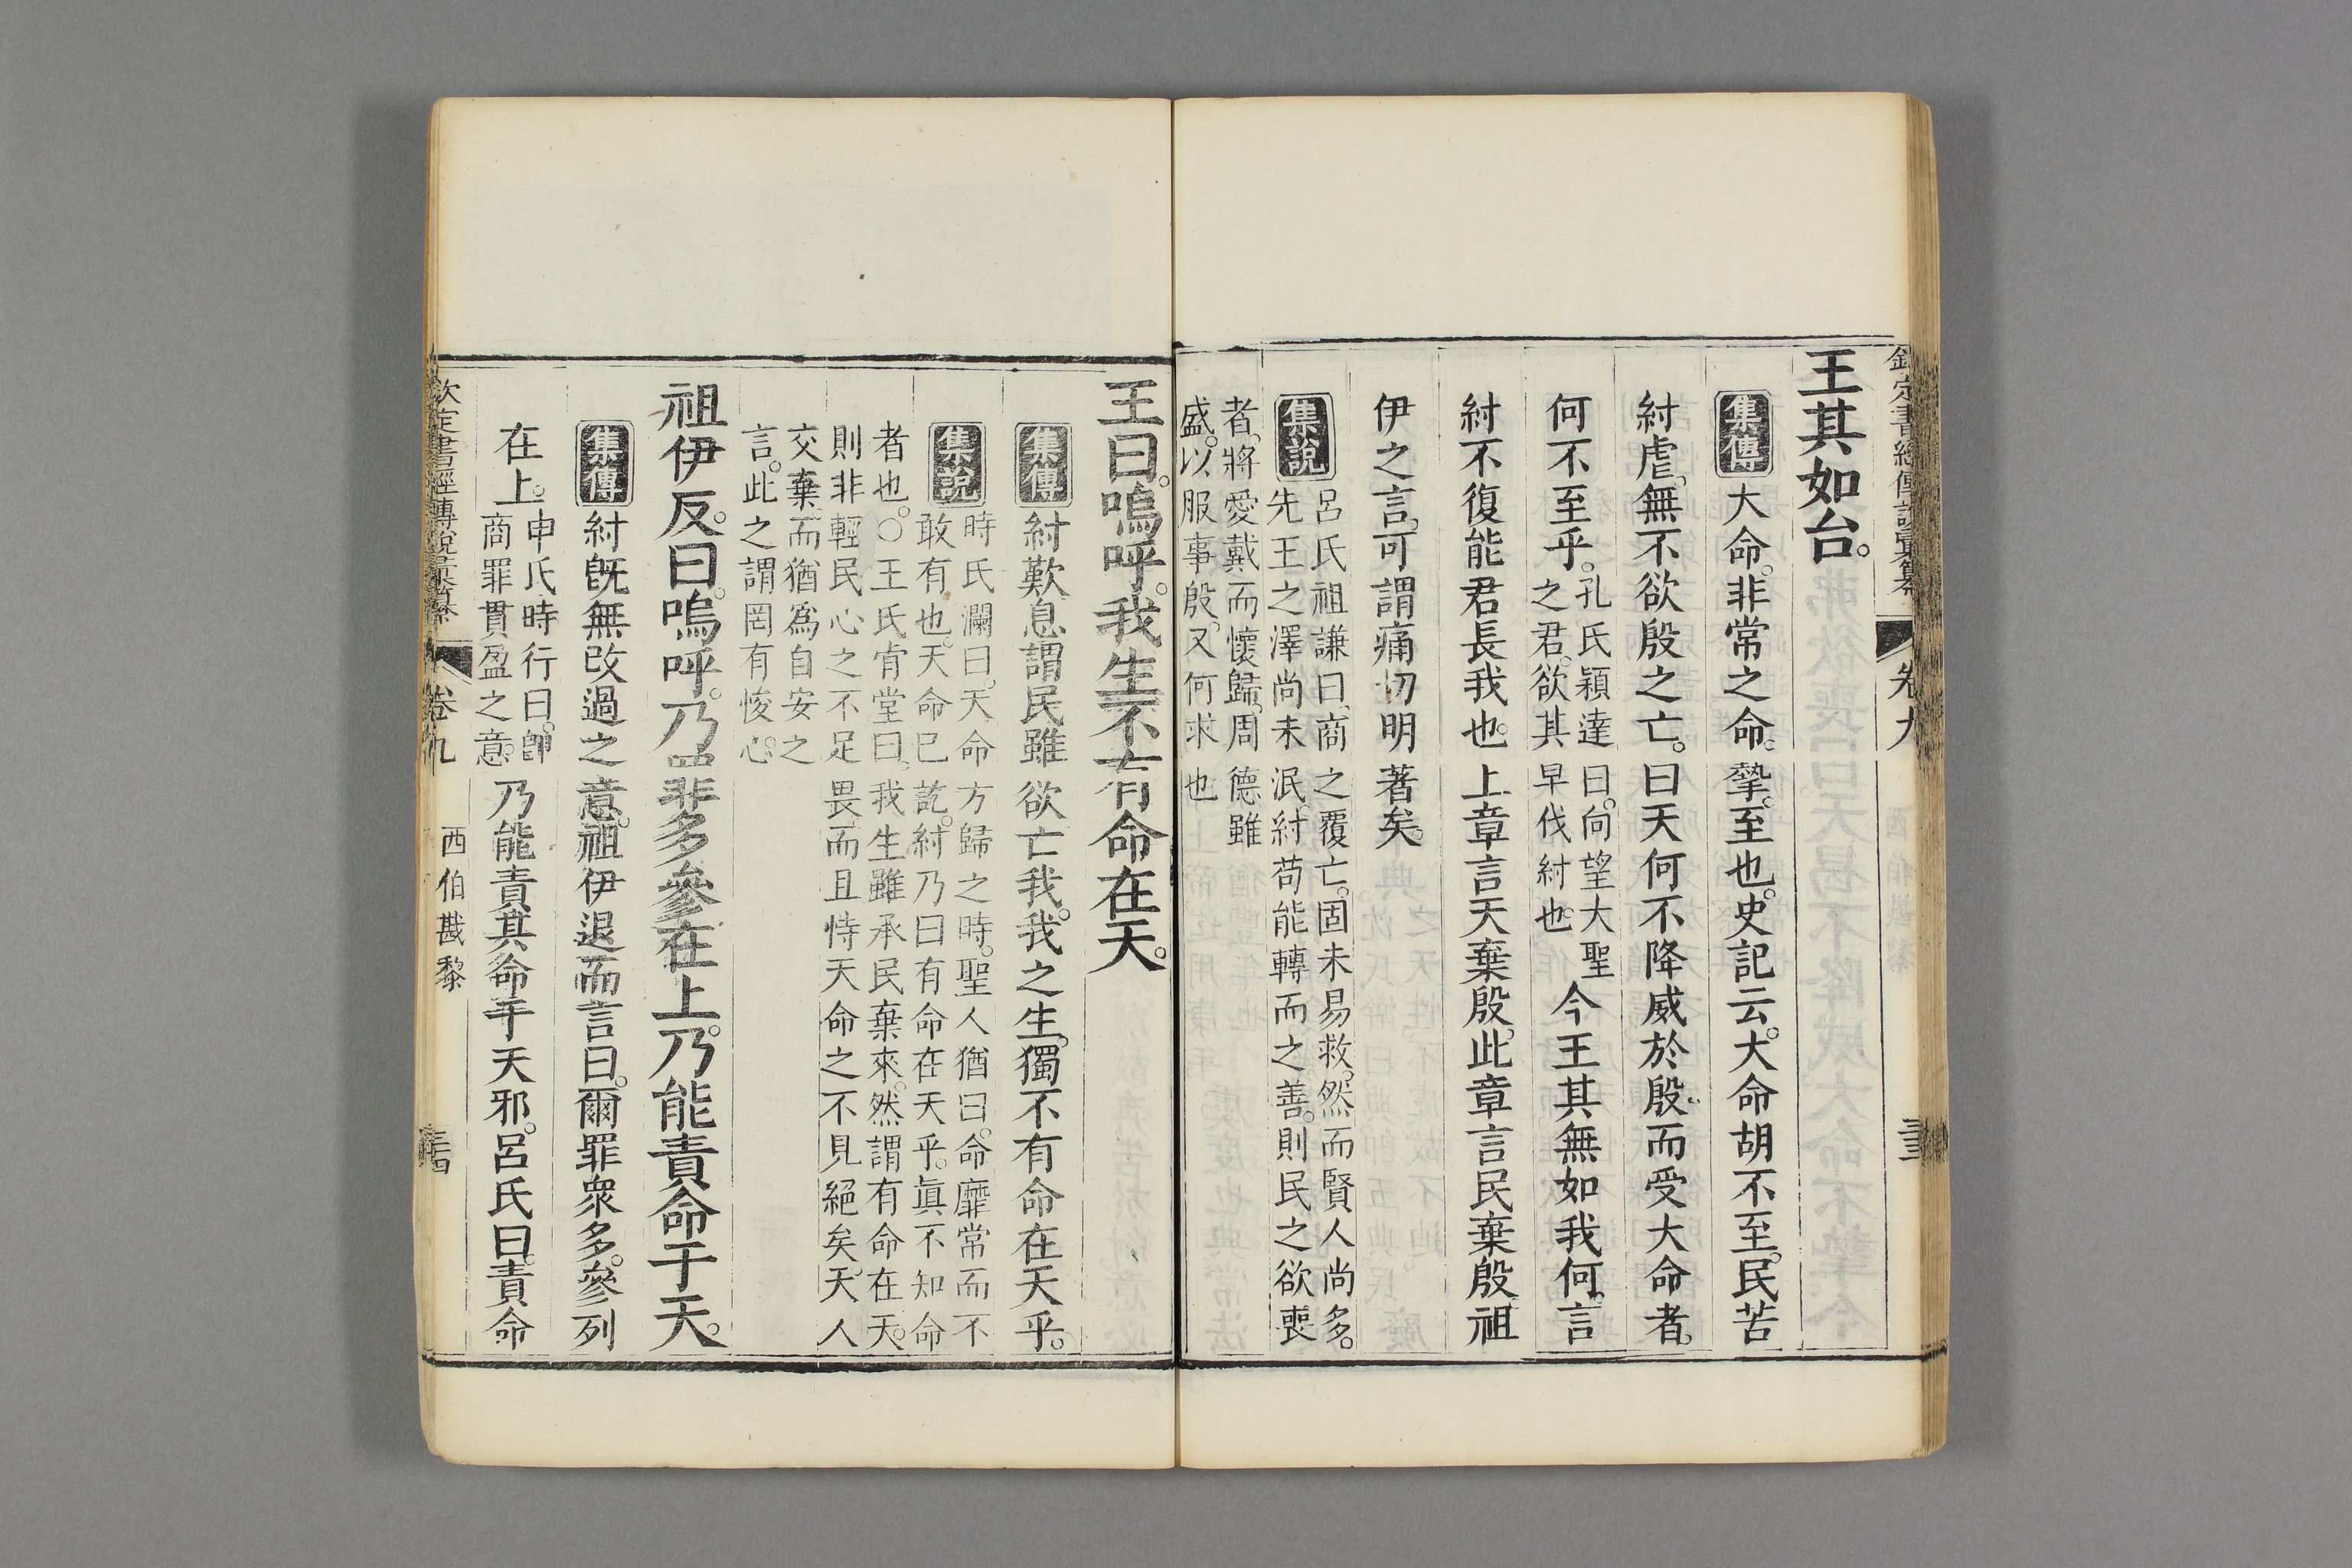 欽定書經傳說彙纂 卷九 三三
王其如台。
集傳 大命。非常之命。摯。至也。史記云。大命胡不至。民苦
紂虐。無不欲殷之亡。曰天何不降威於殷。而受大命者。
何不至乎。
孔氏穎達曰。向望大聖
之君。欲其早伐紂也。
今王其無如我何。言
紂不復能君長我也。上章言天棄殷。此章言民棄殷。祖
伊之言。可謂痛切明著矣。
集說 呂氏祖謙曰。商之覆亡。固未易救。然而賢人尚多。
先王之澤尚未泯。紂苟能轉而之善。則民之欲喪
者。將愛戴而懷歸。周德雖
盛。以服事殷。又何求也
王曰。嗚呼。我生不有命在天。
集傳 紂歎息謂民雖欲亡我。我之生。獨不有命在天乎。
集說 時氏瀾曰。天命方歸之時。聖人猶曰。命靡常而不
敢有也。天命已訖。紂乃曰有命在天乎。眞不知命
者也。○王氏肯堂曰。我生雖承民棄來。然謂有命在天。
則非輕民心之不足畏。而且恃天命之不見絕矣。天人
交棄。而猶爲自安之
言。此之謂罔有悛心。
祖伊反。曰。嗚呼。乃罪多參在上。乃能責命于天。
集傳 紂旣無改過之意。祖伊退而言曰。爾罪衆多。參列
在上。
申氏時行曰。卽
商罪貫盈之意。
乃能責其命于天邪。呂氏曰。責命
欽定書經傳說彙纂 卷九 西伯戡黎 三四